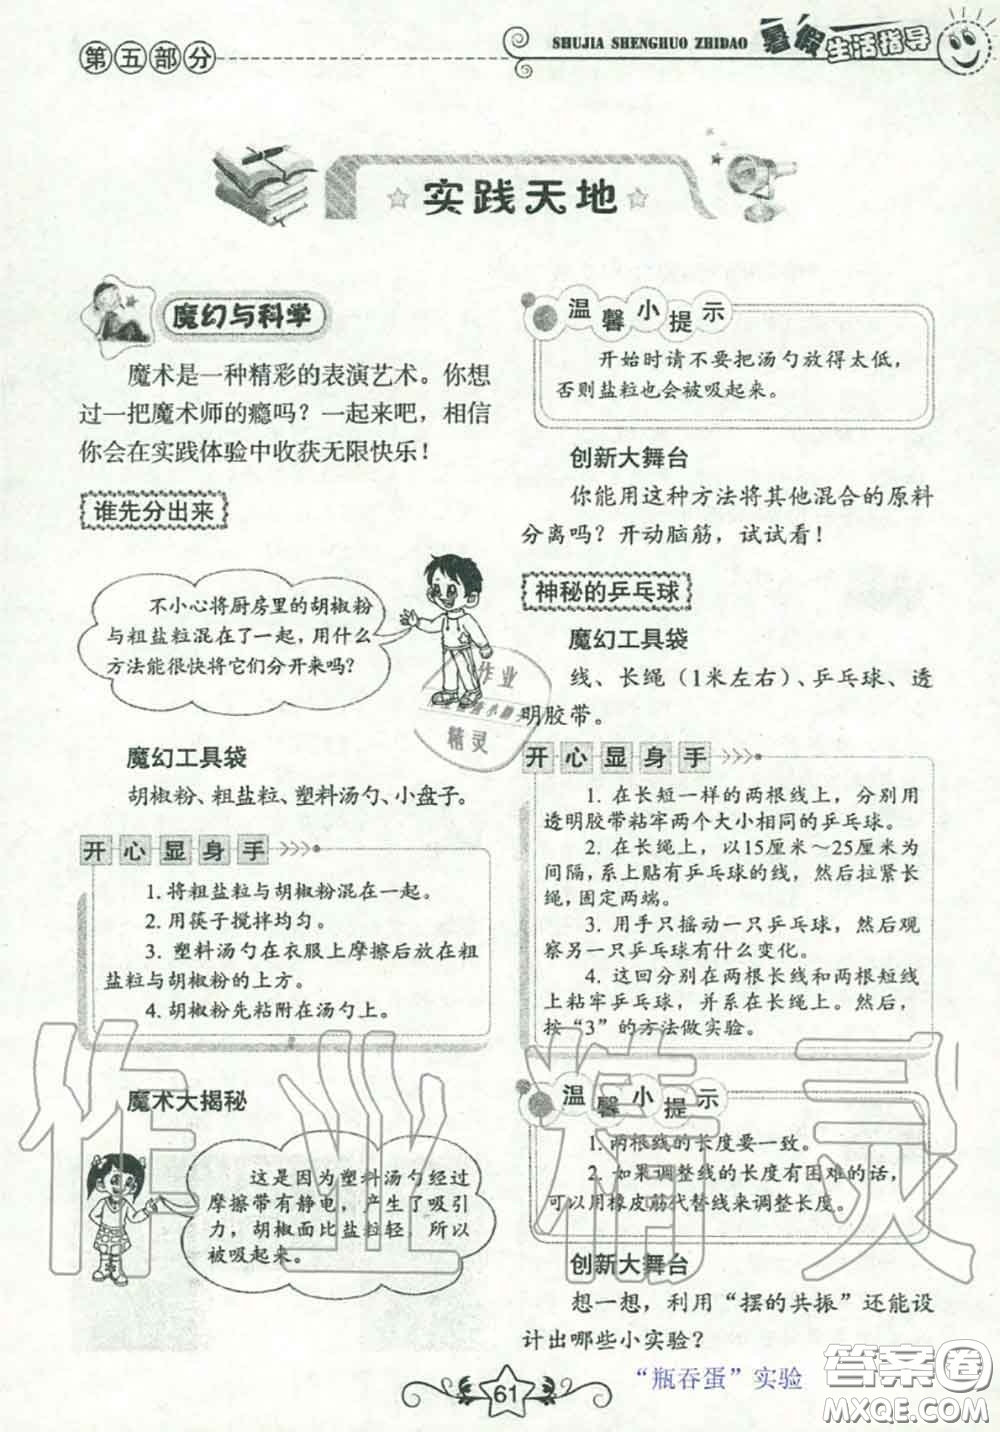 第五部分
SHUJIA SHENGHUO ZHIDAO 暑假生活指导
实践天地
魔幻与科学
魔术是一种精彩的表演艺术。你想
过一把魔术师的瘾吗？一起来吧，相信
你会在实践体验中收获无限快乐！
谁先分出来
不小心将厨房里的胡椒粉
与粗盐粒混在了一起，用什么
方法能很快将它们分开来吗？
魔幻工具袋
胡椒粉、粗盐粒、塑料汤勺、小盘子。
开心显身手
1. 将粗盐粒与胡椒粉混在一起。
2. 用筷子搅拌均匀。
3. 塑料汤勺在衣服上摩擦后放在粗
盐粒与胡椒粉的上方。
4. 胡椒粉先粘附在汤勺上。
魔术大揭秘
这是因为塑料汤勺经过
摩擦带有静电，产生了吸引
力，胡椒面比盐粒轻，所以
被吸起来。
温馨小提示
开始时请不要把汤勺放得太低，
否则盐粒也会被吸起来。
创新大舞台
你能用这种方法将其他混合的原料
分离吗？开动脑筋，试试看！
神秘的乒乓球
魔幻工具袋
线、长绳（1米左右）、乒乓球、透
明胶带。
开心显身手
1. 在长短一样的两根线上，分别用
透明胶带粘牢两个大小相同的乒乓球。
2. 在长绳上，以15厘米～25厘米为
间隔，系上贴有乒乓球的线，然后拉紧长
绳，固定两端。
3. 用手只摇动一只乒乓球，然后观
察另一只乒乓球有什么变化。
4. 这回分别在两根长线和两根短线
上粘牢乒乓球，并系在长绳上。然后，
按“3”的方法做实验。
温馨小提示
1. 两根线的长度要一致。
2. 如果调整线的长度有困难的话，
可以用橡皮筋代替线来调整长度。
创新大舞台
想一想，利用“摆的共振”还能设
计出哪些小实验？
“瓶吞蛋”实验
61
作业精灵
作业
精灵
答案圈
MXQE.COM